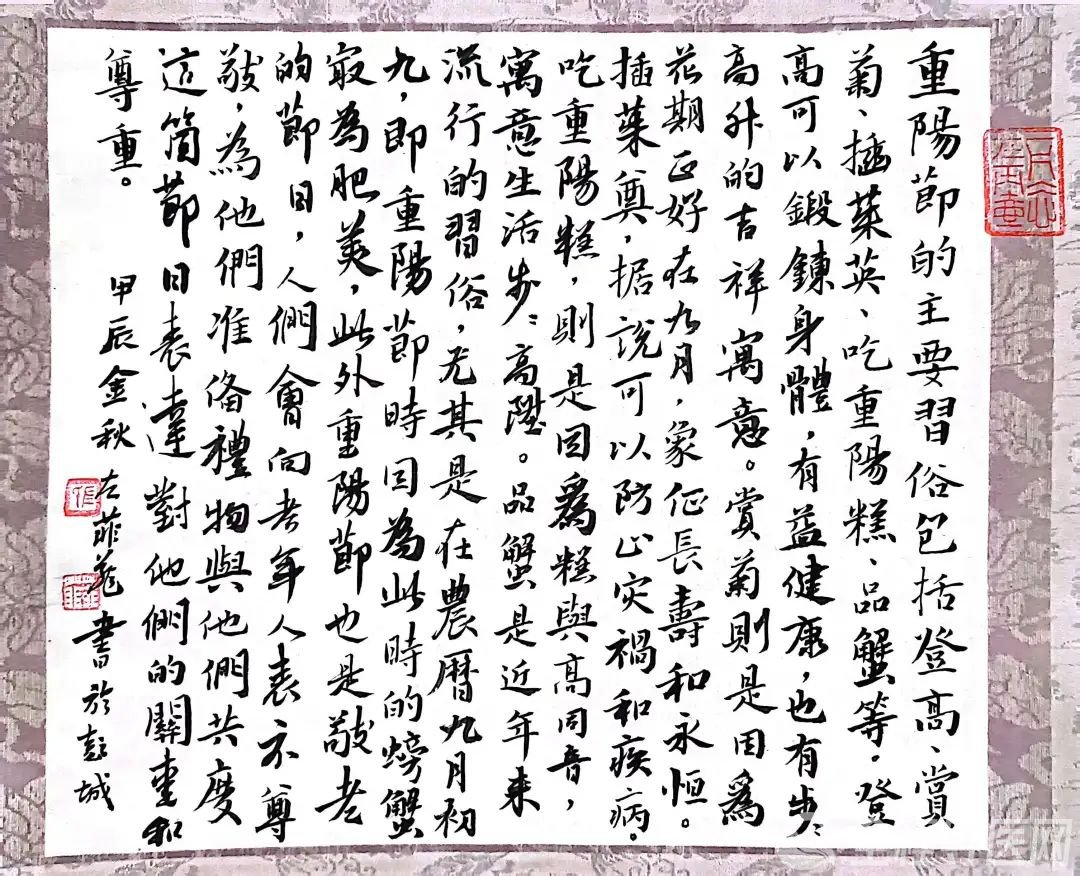 重陽節的主要習俗包括登高、賞
菊、插茱英、吃重陽糕、品蟹等。登
高可以鍛鍊身體，有益健康，也有步:
高升的吉祥寓意。賞菊則是因爲
花期正好在九月，象征長壽和永恒。
插茱萸，据說可以防止灾禍和疾病。
吃重陽糕，則是因爲糕與高同音，
寓意生活步:高陞。品蟹是近年来
流行的習俗，尤其是在農曆九月初
九，即重陽節時因為此時的螃蟹
㝡為肥美，此外重陽節也是敬老
的節日，人們會向老年人表示尊
敬，為他們准俻禮物與他們共度
這箇節日表達對他們的關重和
尊重。
甲辰金秋 左菲 書於彭城